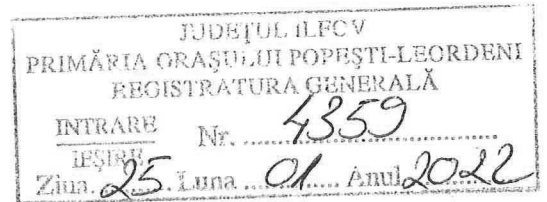 JUDEȚUL ILFOV
PRIMĂRIA ORAȘULUI POPEȘTI-LEORDENI
REGISTRATURA GENERALĂ
INTRARE Nr. 4359
IEȘIRE
Ziua. 25 Luna 01 Anul 2022